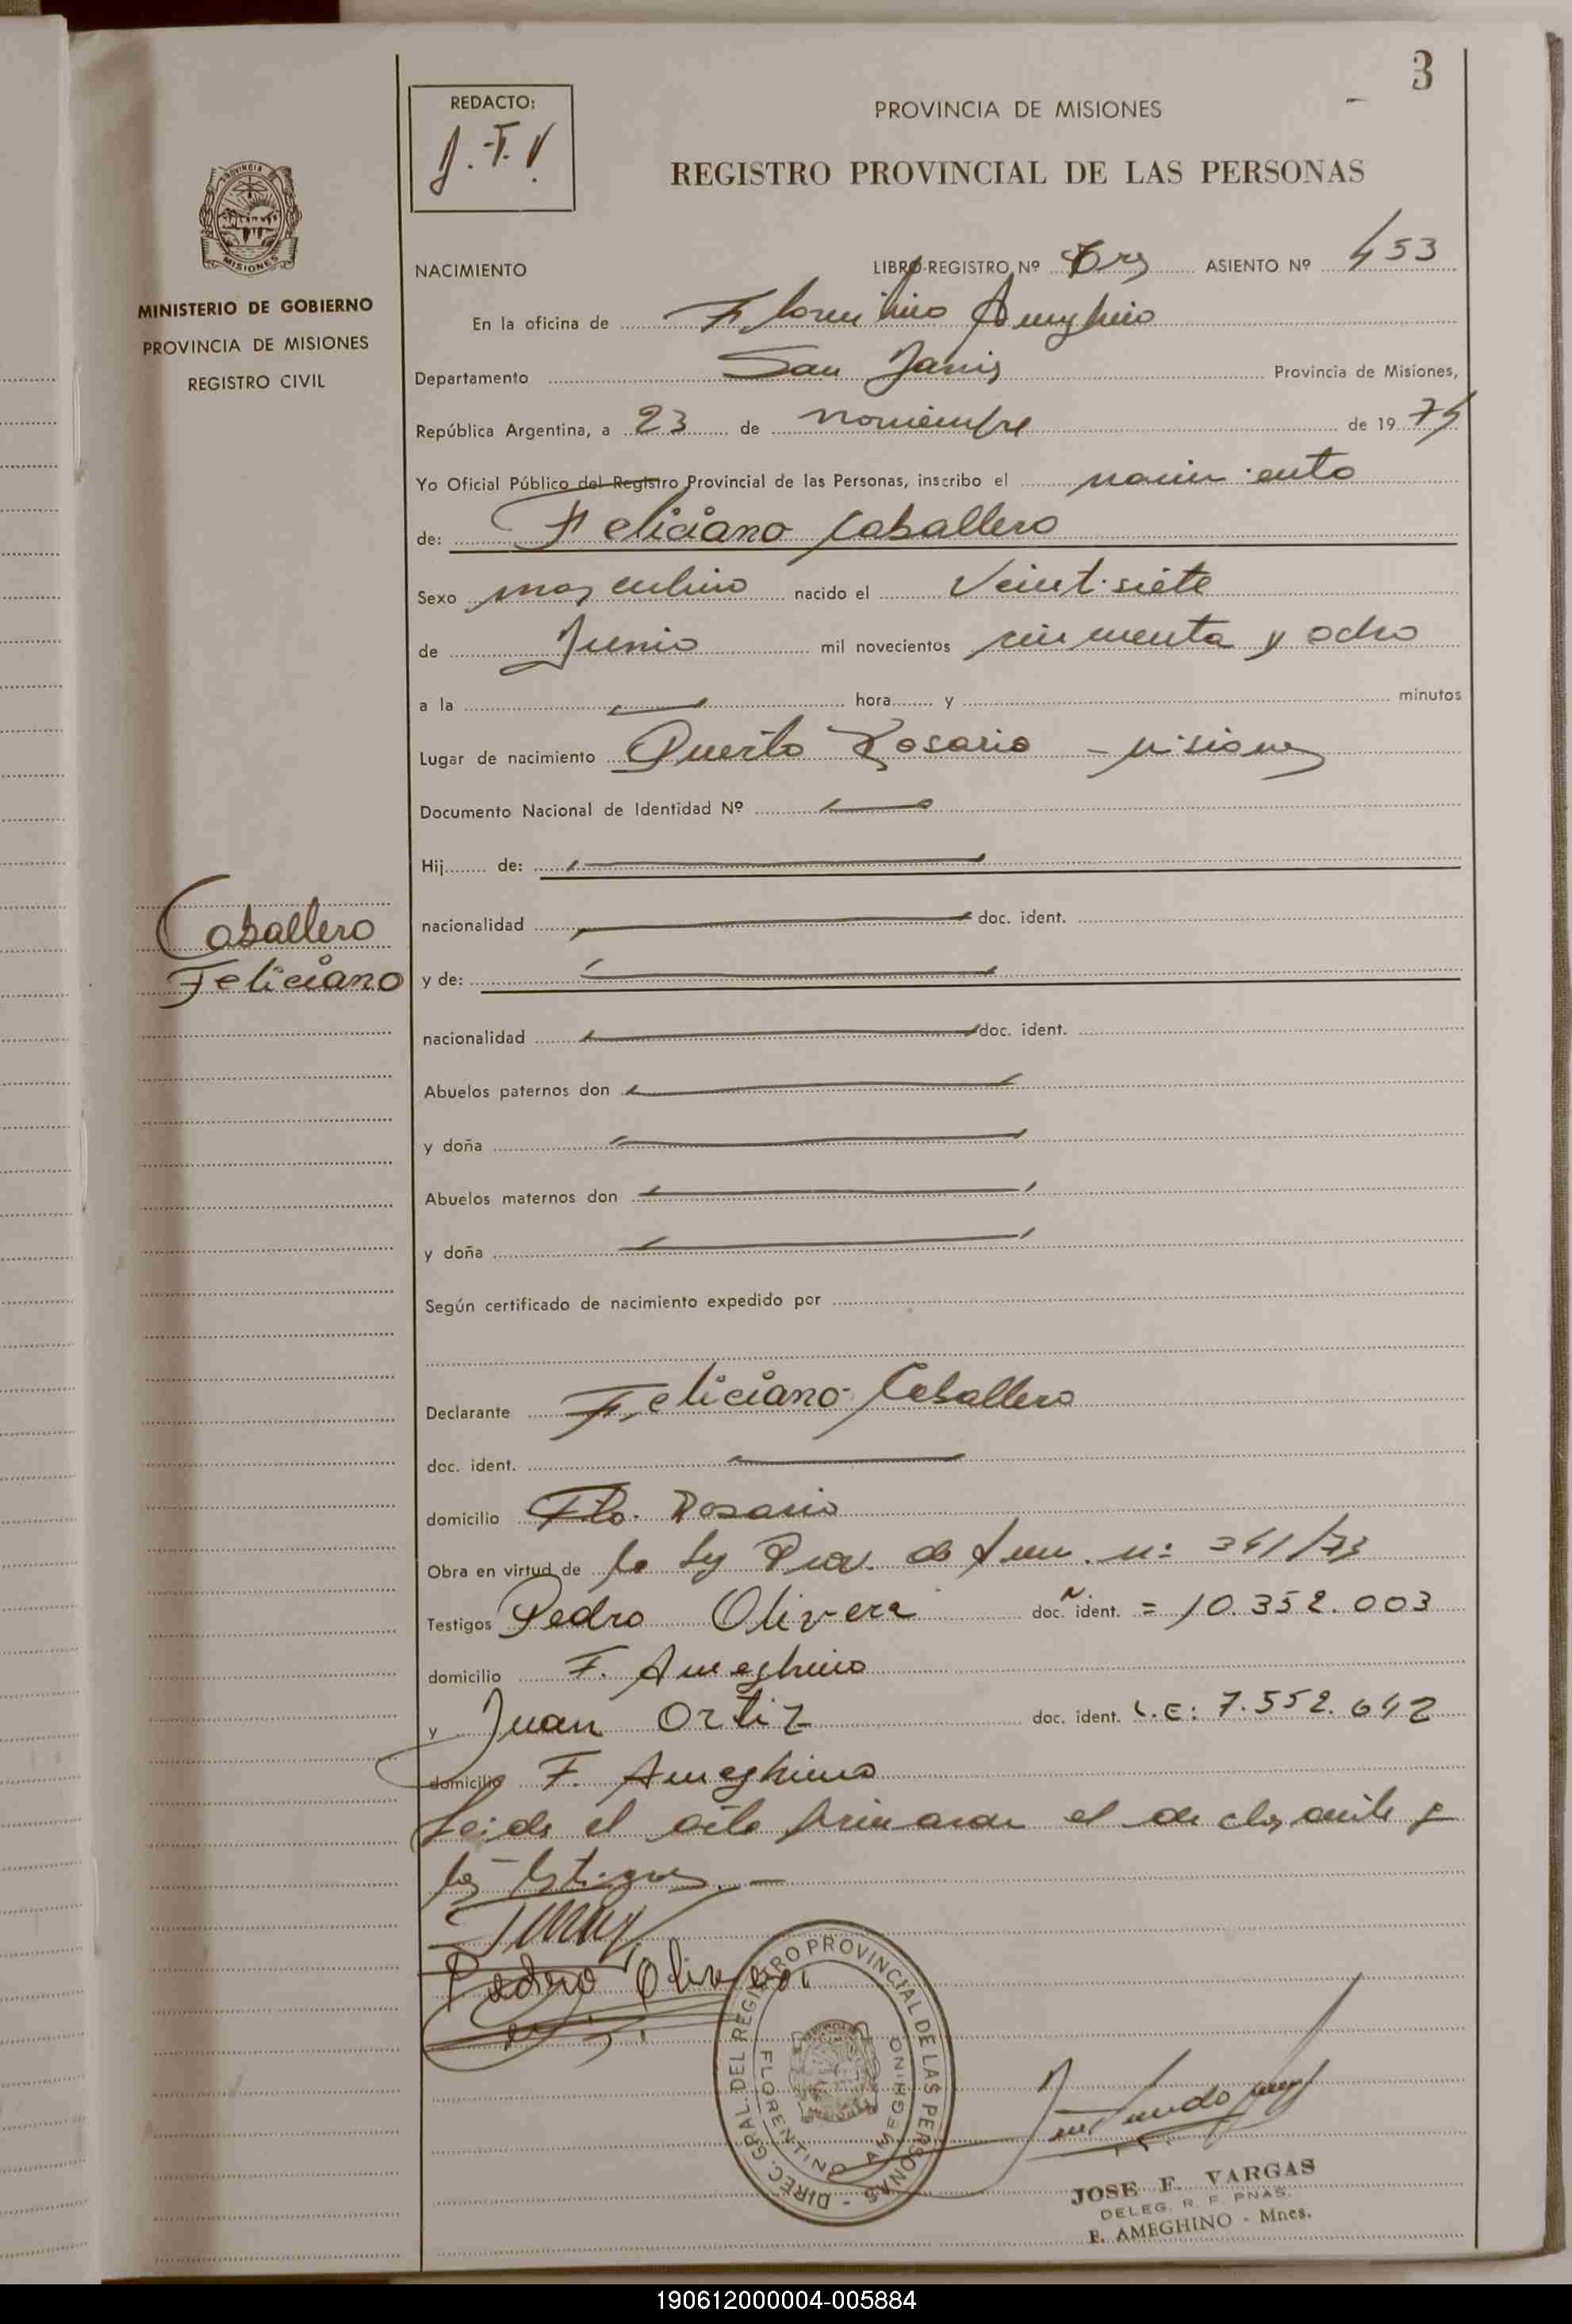 3
REDACTO:
J.F.V.
PROVINCIA DE MISIONES
REGISTRO PROVINCIAL DE LAS PERSONAS
PROVINCIA DE MISIONES
MINISTERIO DE GOBIERNO
PROVINCIA DE MISIONES
REGISTRO CIVIL
NACIMIENTO LIBRO-REGISTRO Nº Tres ASIENTO Nº 453
En la oficina de Florentino Ameghino
Departamento San Javier Provincia de Misiones,
República Argentina, a 23 de noviembre de 1974
Yo Oficial Público del Registro Provincial de las Personas, inscribo el nacimiento
de: Feliciano Caballero
Sexo masculino nacido el Veintisiete
de Junio mil novecientos cincuenta y ocho
a la hora y minutos
Lugar de nacimiento Puerto Rosario - Misiones
Documento Nacional de Identidad Nº
Hij de:
Caballero
nacionalidad doc. ident.
Feliciano
y de:
nacionalidad doc. ident.
Abuelos paternos don
y doña
Abuelos maternos don
y doña
Según certificado de nacimiento expedido por
Declarante Feliciano Caballero
doc. ident.
domicilio Pto. Rosario
Obra en virtud de la Ley Prov. de nº 341/73
Testigos Pedro Olivera doc. ident. = 10.352.003
domicilio F. Ameghino
y Juan Ortiz doc. ident. L.E: 7.552.642
domicilio F. Ameghino
Leida el acta firmaran el declarante y
los testigos. -
Pedro Olivera
DIREC. GRAL. DEL REGISTRO PROVINCIAL DE LAS PERSONAS -
FLORENTINO AMEGHINO
JOSE F. VARGAS
DELEG. R. P. PNAS.
F. AMEGHINO - Mnes.
190612000004-005884